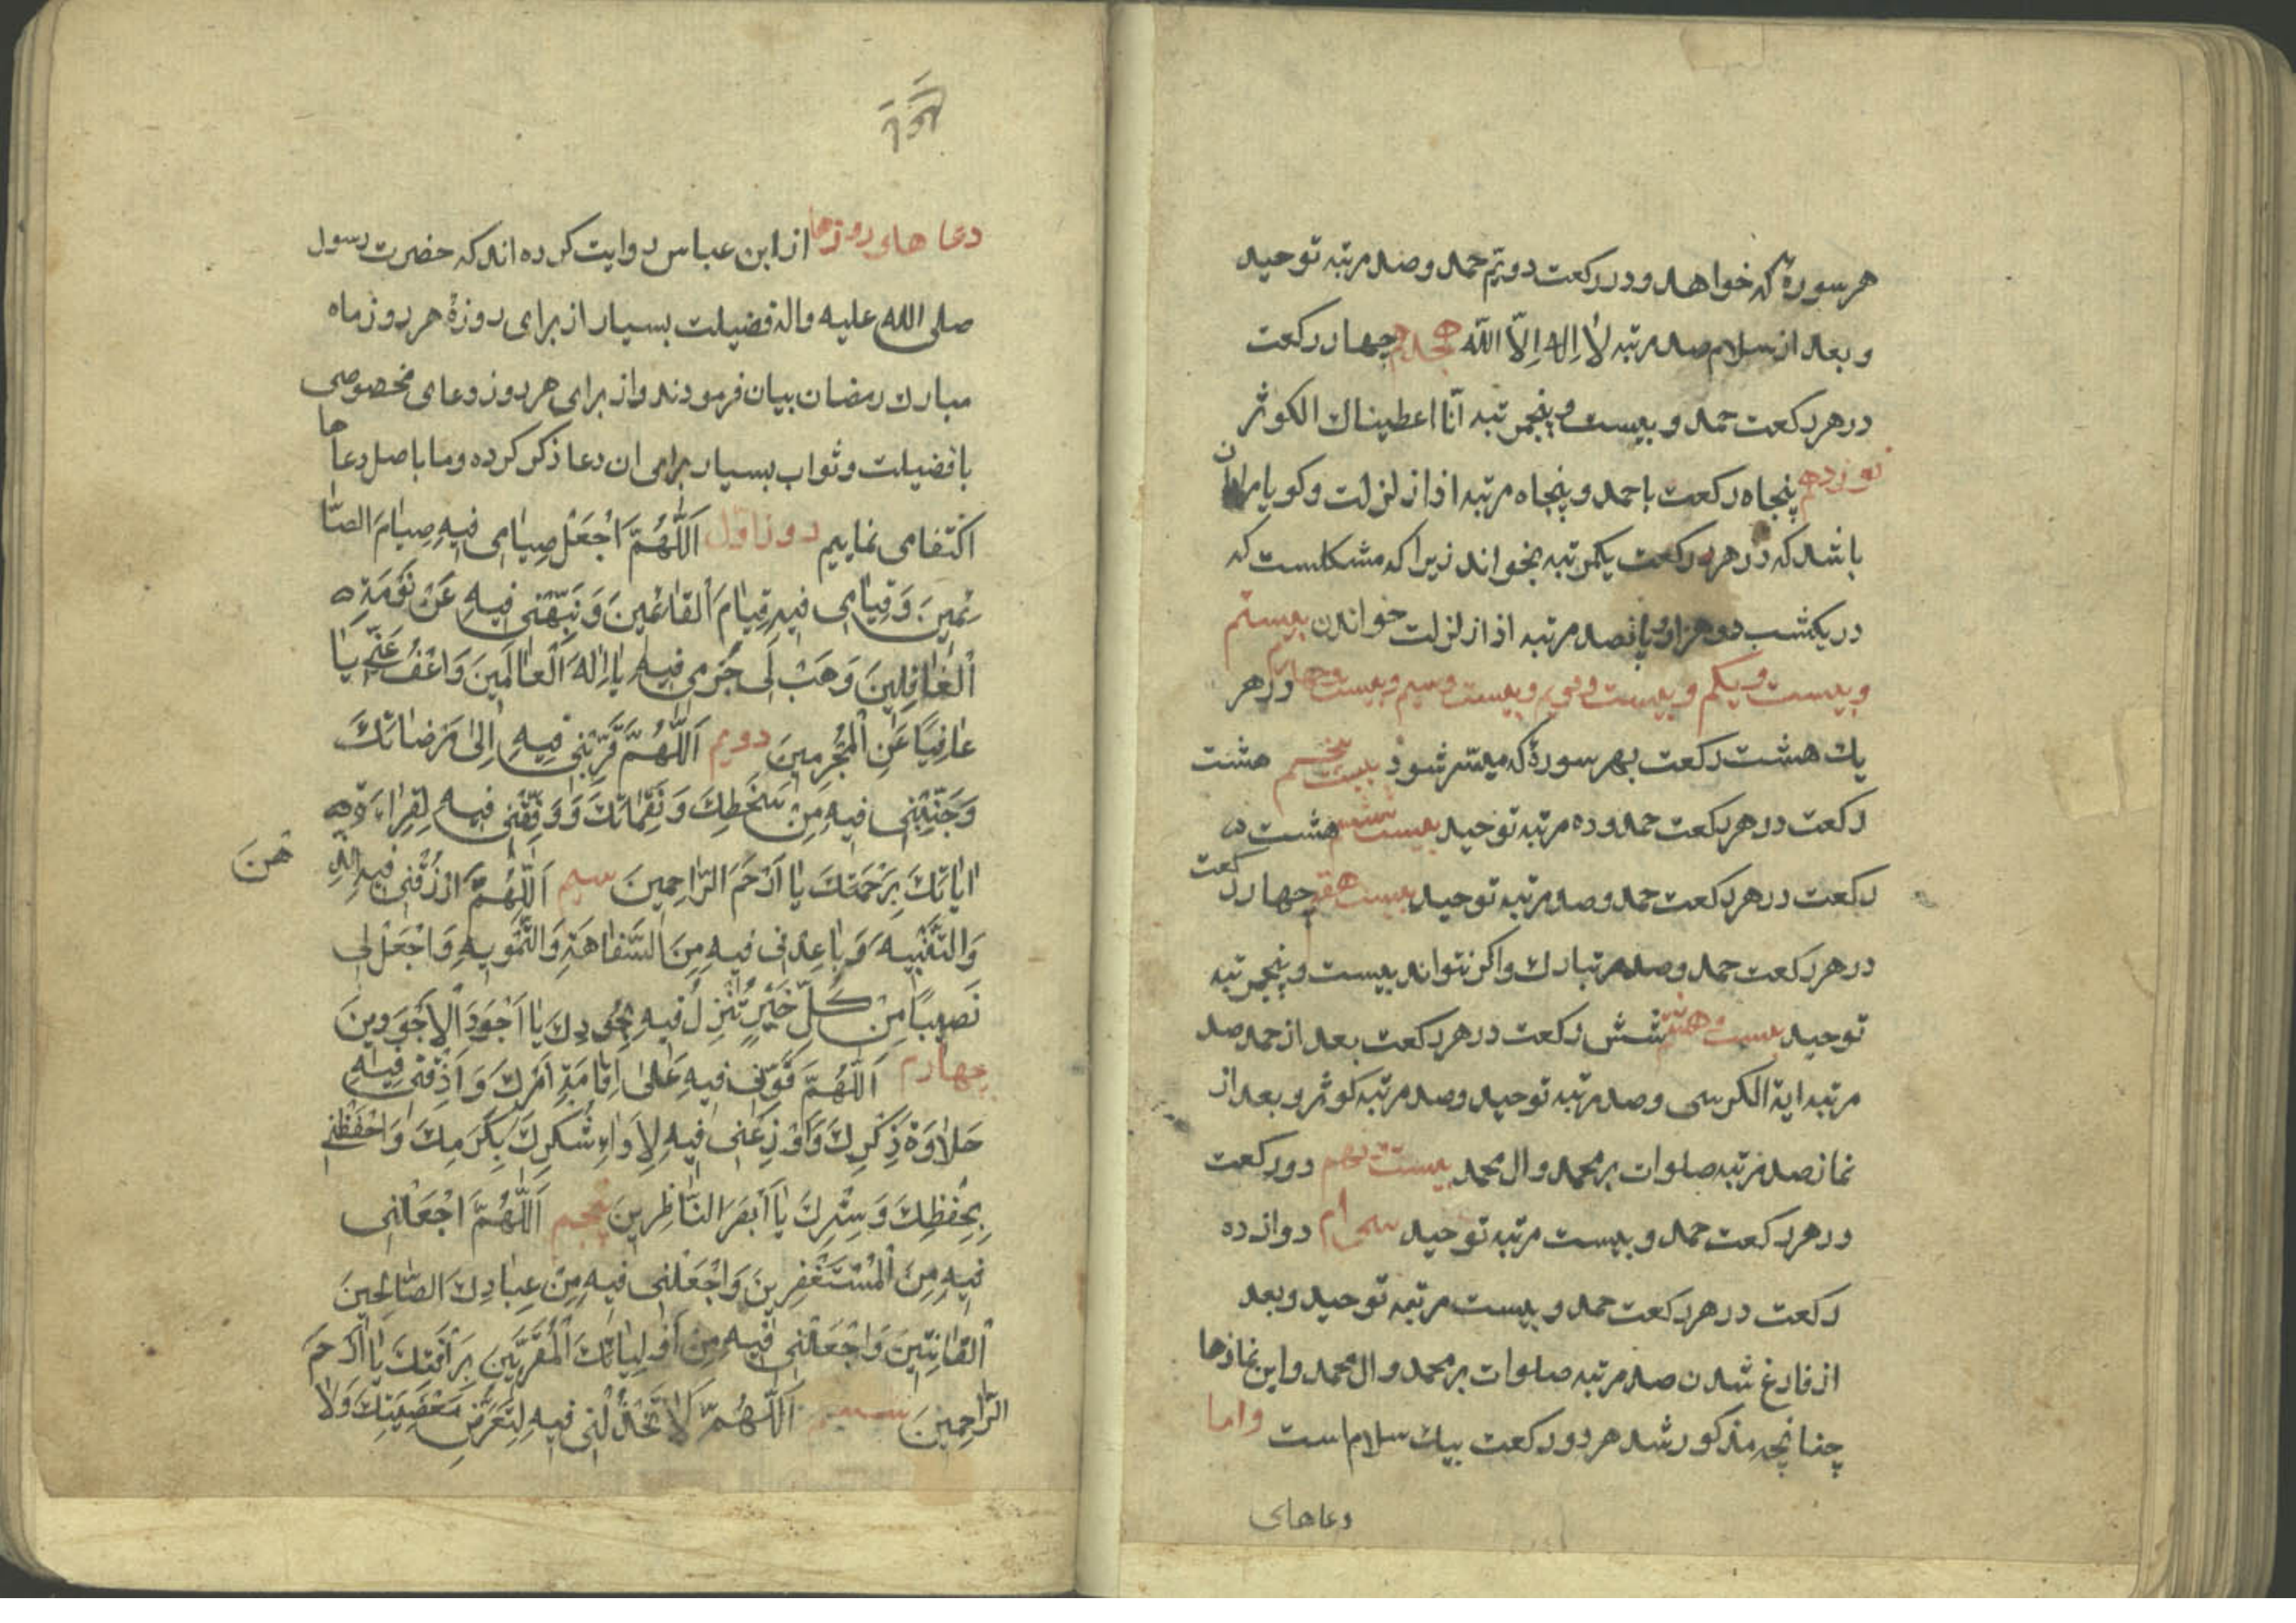 هر سورهٔ که خواهد و در رکعت دویّم حمد و صد مرتبه توحید
و بعد از سلام صد مرتبه لٰا اِلٰه اِلّا اللّه هیجدهم چهار رکعت
در هر رکعت حمد و بیست و پنجمرتبه انّا اعطیناك الکوثر
نوزدهم پنجاه رکعت با حمد و پنجاه مرتبه اذا زلزلت و کویا مراد ان
باشد که در هر رکعت یکمرتبه بخواند زیرا که مشکلست که
در یکشب دو هزار و پانصد مرتبه اذا زلزلت خواندن بیستم
و بیست و یکم و بیست و دویم و بیست و سیم و بیست و چهارم در هر
یك هشت رکعت بهر سورهٔ که میسّر شود بیست پنجم هشت
رکعت در هر رکعت حمد و ده مرتبه توحید بیست ششم هشت
رکعت در هر رکعت حمد و صد مرتبه توحید بیست هفتم چهار رکعت
در هر رکعت حمد و صد مرتبه تبارك و اکر نتواند بیست و پنجمرتبه
توحید بیست و هشتم شش رکعت در هر رکعت بعد از حمد صد
مرتبه ایة الکرسی و صد مرتبه توحید و صد مرتبه کوثر و بعد از
نماز صد مرتبه صلوات بر محمد و ال محمد بیست نهم دو رکعت
در هر رکعت حمد و بیست مرتبه توحید سی‌ام دوازده
رکعت در هر رکعت حمد و بیست مرتبه توحید و بعد
از فارغ شدن صد مرتبه صلوات بر محمد و ال محمد و این نمازها
چنانچه مذکور شد هر دو رکعت بیك سلام است واما
دعاهای
دعاهای روزها از ابن عباس روایت کرده‌اند که حضرت رسول
صلی الله علیه و اله فضیلت بسیار از برای روزهٔ هر روز ماه
مبارك رمضان بیان فرمودند و از برای هر روز دعای مخصوصی
با فضیلت و ثواب بسیار برای ان دعا ذکر کرده و ما باصل دعاها
اکتفا می نماییم روز اوّل اَللّٰهُمَّ اجْعَلْ صِیٰامی فیهِ صِیٰامَ الصّٰا
ئِمینَ وَ قِیٰامی فیهِ قِیٰامَ الْقٰائِمینَ وَ نَبِّهْنی فیهِ عَنْ نَوْمَةِ
الْغٰافِلینَ وَ هَبْ لی جُرْمی فیهِ یٰا اِلٰهَ الْعٰالَمینَ وَاعْفُ عَنّی یٰا
عٰافِیًا عَنِ الْمُجْرِمینَ دویم اَللّٰهُمَّ قَرِّبْنی فیهِ اِلیٰ مَرْضٰاتِكَ
وَ جَنِّبْنی فیهِ مِنْ سَخَطِكَ وَ نَقِمٰاتِكَ وَ وَفِّقْنی فیهِ لِقِرٰاءَةِ
ایٰاتِكَ بِرَحْمَتِكَ یٰا اَرْحَمَ الرّٰاحِمینَ سیم اَللّٰهُمَّ ارْزُقْنی فیهِ الذِّ
هْنَ
وَالتَّنْبیهَ وَ بٰاعِدْنی فیهِ مِنَ السَّفٰاهَةِ وَالتَّمْویهِ وَاجْعَلْ لی
نَصیبًا مِنْ کُلِّ خَیْرٍ تُنْزِلُ فیهِ بِجُودِكَ یٰا اَجْوَدَ الْاَجْوَدینَ
چهارم اَللّٰهُمَّ قَوِّنی فیهِ عَلیٰ اِقٰامَةِ اَمْرِكَ وَ اَذِقْنی فیهِ
حَلٰاوَةَ ذِکْرِكَ وَ اَوْزِعْنی فیهِ لِاَدٰاءِ شُکْرِكَ بِکَرَمِكَ وَاحْفَظْنی
بِحِفْظِكَ وَ سِتْرِكَ یٰا اَبْصَرَ النّٰاظِرینَ پنجم اَللّٰهُمَّ اجْعَلْنی
فیهِ مِنَ الْمُسْتَغْفِرینَ وَاجْعَلْنی فیهِ مِنْ عِبٰادِكَ الصّٰالِحینَ
الْقٰانِتینَ وَاجْعَلْنی فیهِ مِنْ اَوْلِیٰائِكَ الْمُقَرَّبینَ بِرَأْفَتِكَ یٰا اَرْحَمَ
الرّٰاحِمینَ ششم اَللّٰهُمَّ لٰا تَخْذُلْنی فیهِ لِتَعَرُّضِ مَعْصِیَتِكَ وَلٰا